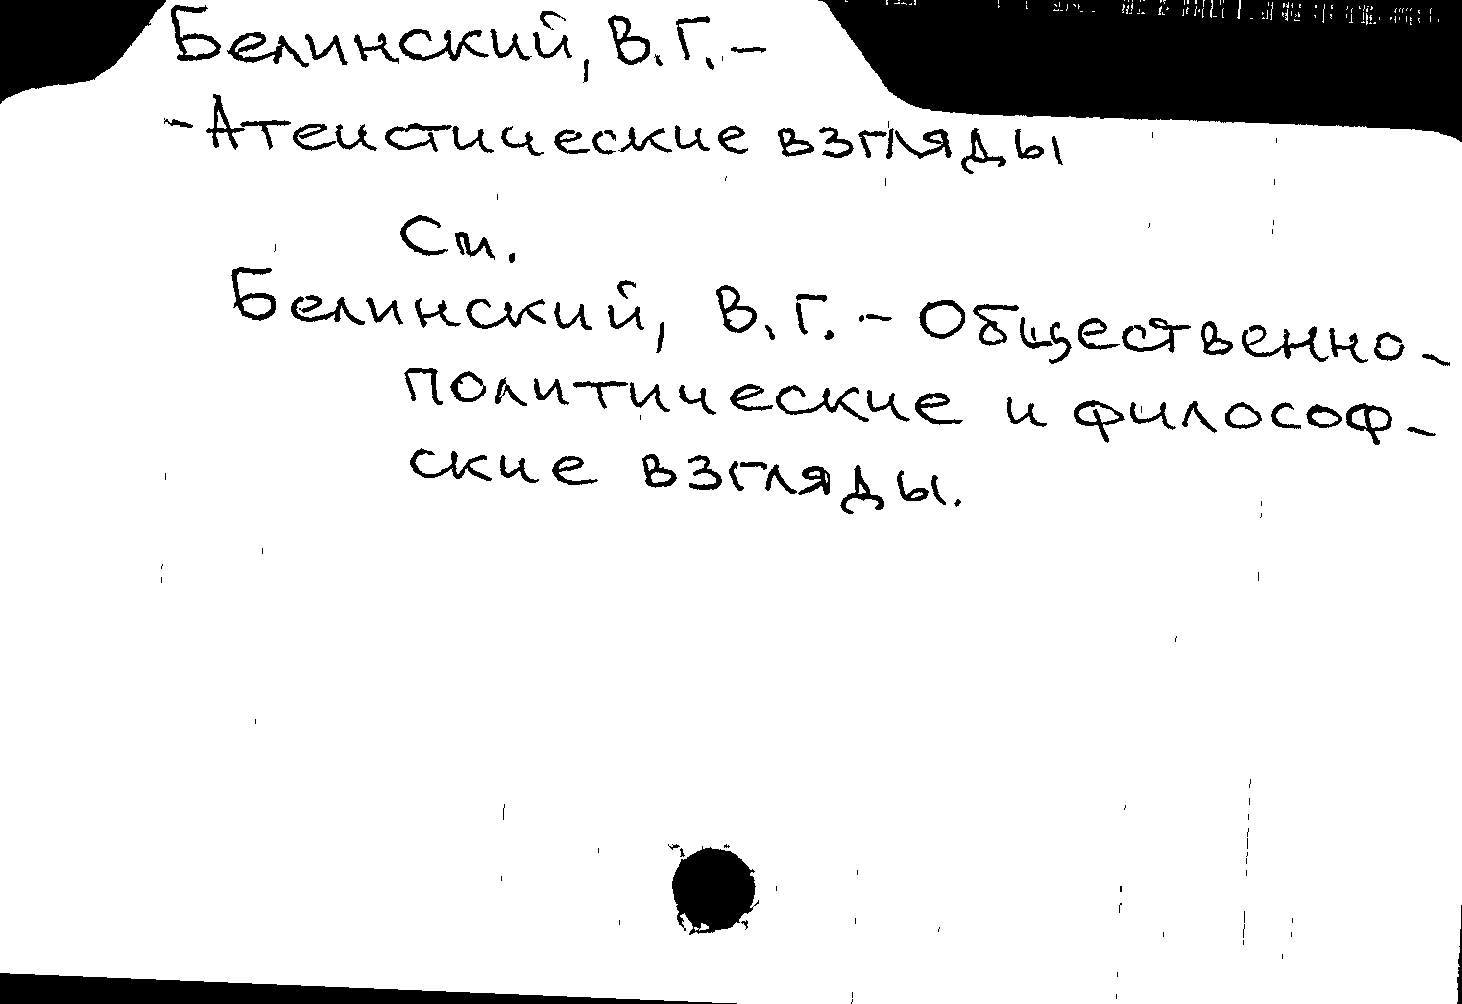 Белинский, В.Г.-
-Атеистические взгляды
См.
Белинский, В.Г.- Общественно-
политические и философ-
ские взгляды.